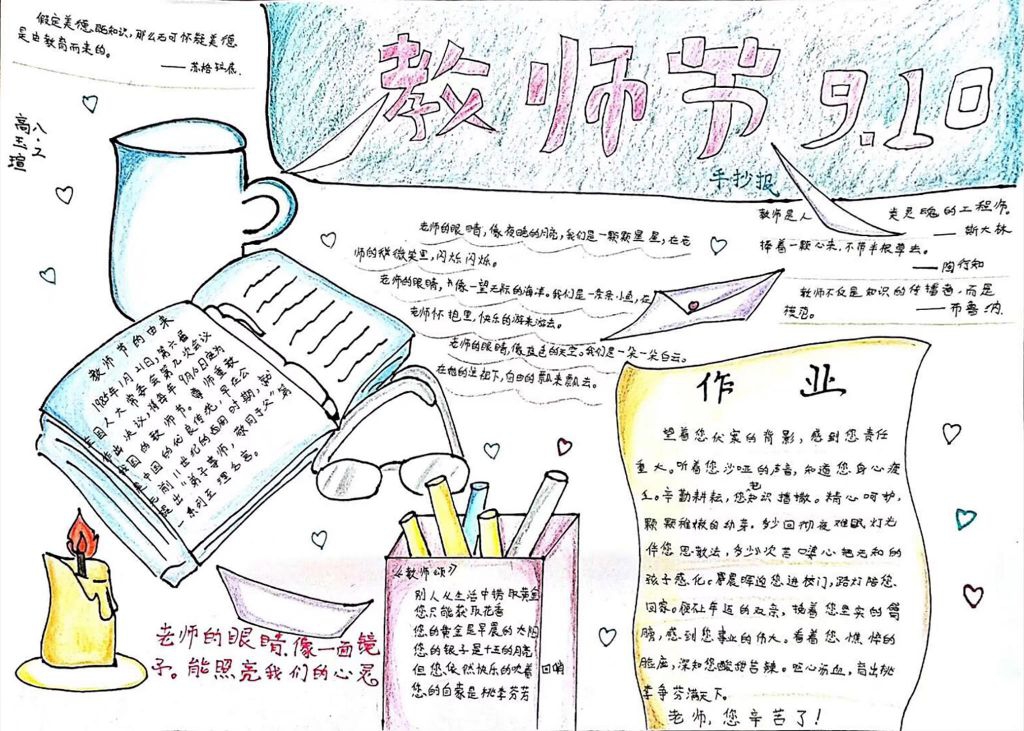 假定美德既知识,那么无可怀疑美德
是由教育而来的。
——苏格拉底.
教师节 9.10
手抄报
八.2
高玉瑄
教师是人类灵魂的工程师。
——斯大林
捧着一颗心来,不带半根草去。
——陶行知
教师不仅是知识的传播者,而是
模范。
——布鲁纳.
老师的眼睛,像夜晚的月亮,我们是一颗颗星星,在老
师的微微笑里,闪烁闪烁。
老师的眼睛,像一望无际的海洋。我们是一条条小鱼,在
老师怀抱里,快乐的游来游去。
老师的眼睛,像蓝色的天空。我们是一朵一朵白云。
在他的连祖下,自由的飘来飘去。
教师节的由来
1985年1月21日,第六届
人大常委会第九次会议
作出决议,将每年9月10日定为
我国的教师节。尊师重教
是中国的优良传统,早在公
元前11世纪的西周时期,就
提出"弟子事师,敬同于父"等
一系列至理名言。
老师的眼睛,像一面镜
子。能照亮我们的心灵
《教师颂》
别人从生活中捞取黄金
您只能获取花香
您的黄金是早晨的太阳
您的银子是十五的月亮
但您依然快乐的吹着口哨
您的自豪是桃李芬芳
作业
望着您伏案的背影,感到您责任
重大。听着您沙哑的声音,知道您身心疲
辛勤耕耘,您把知识播撒。精心呵护,
颗颗稚嫩的幼芽。多少回彻夜难眠,灯光
伴您思教法,多少次苦口婆心把无知的
孩子感化。晨晖迎您进校门,路灯陪您
回家。
膀,感到您事业的伟大。看着您憔悴的
脸庞,深知您酸甜苦辣。呕心沥血,育出桃
李争芬满天下。
老师,您辛苦了!